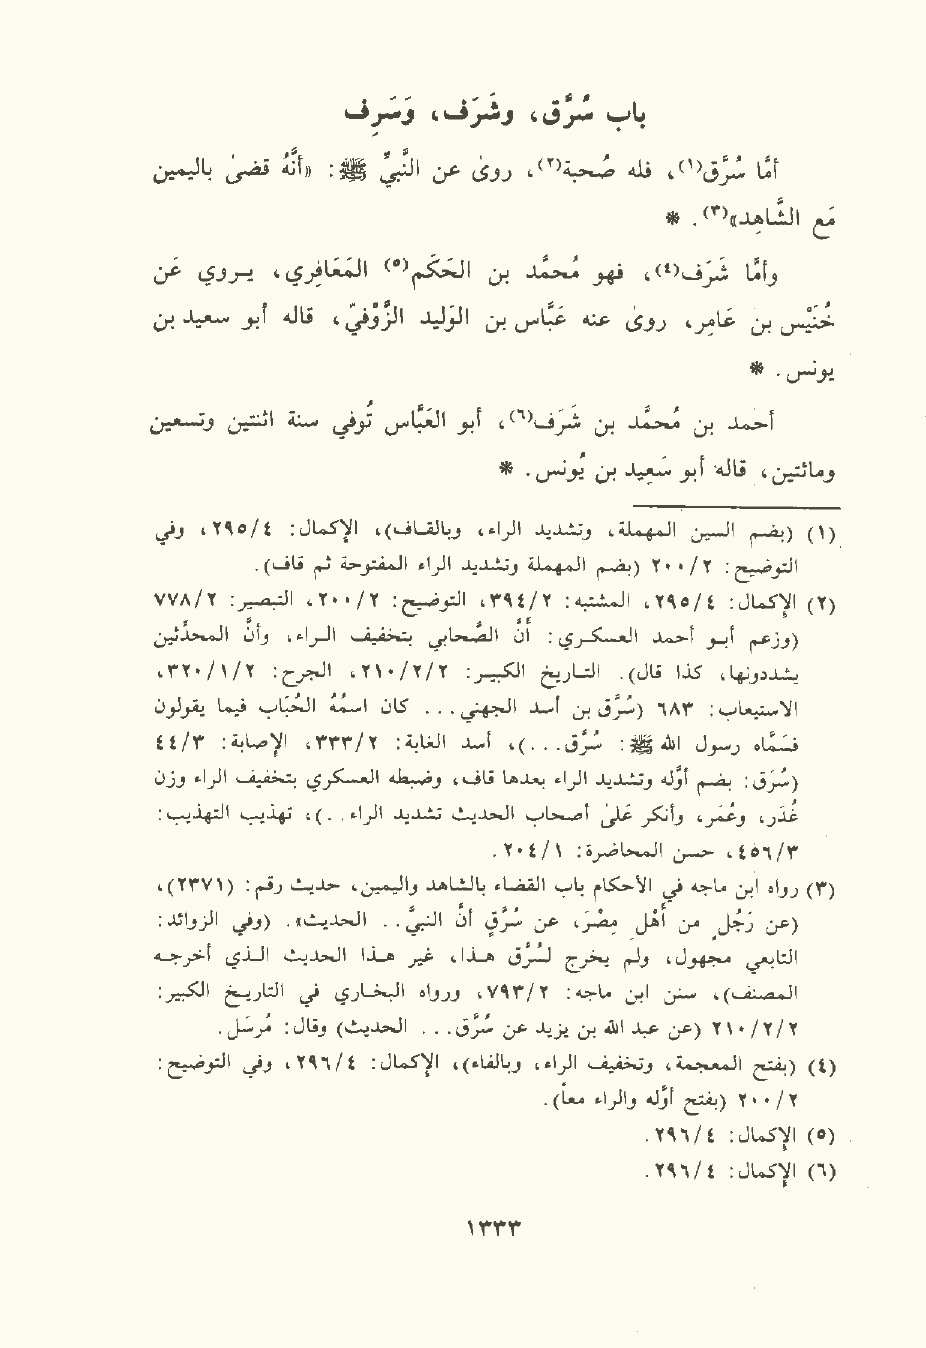 باب سُرَّق، وشَرَف، وَسَرِف
أمَّا سُرَّق(١)، فله صُحبة(٢)، روىٰ عن النَّبيِّ ﷺ: «أنَّهُ قضىٰ باليمين
مَع الشَّاهِد»(٣). *
وأمَّا شَرَف(٤)، فهو محُمَّد بن الحَكَم(٥) المَعَافِري، يـروي عَن
خُنَيْس بن عَامِر، روىٰ عنه عَبَّاس بن الوَليد الزَّوْفيّ، قاله أبو سعيد بن
يونس. *
أحمد بن مُحمَّد بن شَرَف(٦)، أبو العَبَّاس تُوفي سنة اثنتين وتسعين
ومائتين، قاله أبو سَعِيد بن يُونس. *
(١) (بضم السين المهملة، وتشديد الراء، وبالقاف)، الإكمال: ٢٩٥/٤، وفي
التوضيح: ٢٠٠/٢ (بضم المهملة وتشديد الراء المفتوحة ثم قاف).
(٢) الإكمال: ٢٩٥/٤، المشتبه: ٣٩٤/٢، التوضيح: ٢٠٠/٢، التبصير: ٧٧٨/٢
(وزعم أبو أحمد العسكري: أنَّ الصَّحابي بتخفيف الراء، وأنَّ المحدِّثين
يشددونها، كذا قال). التاريخ الكبير: ٢١٠/٢/٢، الجرح: ٣٢٠/١/٢،
الاستيعاب: ٦٨٣ (سُرَّق بن أسد الجهني... كان اسمُهُ الحُبَاب فيما يقولون
فسَمَّاه رسول الله ﷺ: سُرَّق...)، أسد الغابة: ٣٣٣/٢، الإصابة: ٤٤/٣
(سُرَّق: بضم أوَّله وتشديد الراء بعدها قاف، وضبطه العسكري بتخفيف الراء وزن
غُدَر، وعُمَر، وأنكر عَلىٰ أصحاب الحديث تشديد الراء..)، تهذيب التهذيب:
٤٥٦/٣، حسن المحاضرة: ٢٠٤/١.
(٣) رواه ابن ماجه في الأحكام باب القضاء بالشاهد واليمين، حديث رقم: (٢٣٧١)،
(عن رَجُل من أهْل مِصْر، عن سُرَّق أنَّ النبيَّ.. الحديث». (وفي الزوائد:
التابعي مجهول، ولم يخرج لسُرَّق هذا، غير هذا الحديث الذي أخرجه
المصنف)، سنن ابن ماجه: ٧٩٣/٢، ورواه البخاري في التاريخ الكبير:
٢١٠/٢/٢ (عن عبد الله بن يزيد عن سُرَّق... الحديث) وقال: مُرسَل.
(٤) (بفتح المعجمة، وتخفيف الراء، وبالفاء)، الإكمال: ٢٩٦/٤، وفي التوضيح:
٢٠٠/٢ (بفتح أوَّله والراء معاً).
(٥) الإكمال: ٢٩٦/٤.
(٦) الإكمال: ٢٩٦/٤.
١٣٣٣